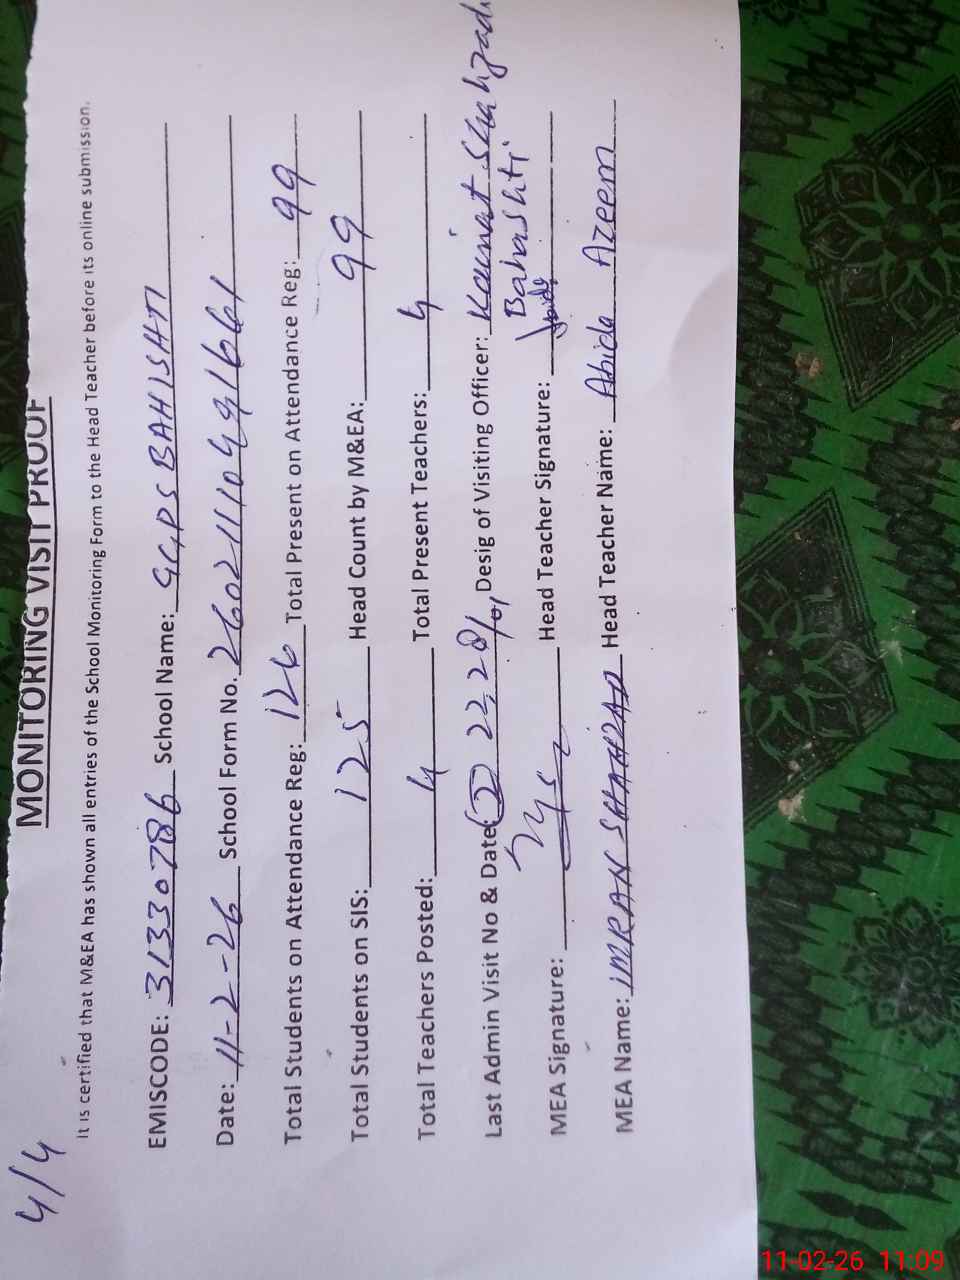 4/4
MONITORING VISIT PROOF
It is certified that M&EA has shown all entries of the School Monitoring Form to the Head Teacher before its online submission.
EMISCODE: 31330786 School Name: GGPS BAHISHTI
Date: 11-2-26 School Form No. 26021110491661
Total Students on Attendance Reg: 126 Total Present on Attendance Reg: 99
Total Students on SIS: 125 Head Count by M&EA: 99
Total Teachers Posted: 4 Total Present Teachers: 4
Last Admin Visit No & Date: 2 22, 28/01 Desig of Visiting Officer: Kainat Shahzadi
Bahashti
MEA Signature: Head Teacher Signature: Abida
MEA Name: IMRAN SHAHZAD Head Teacher Name: Abida Azeem
11-02-26 11:09